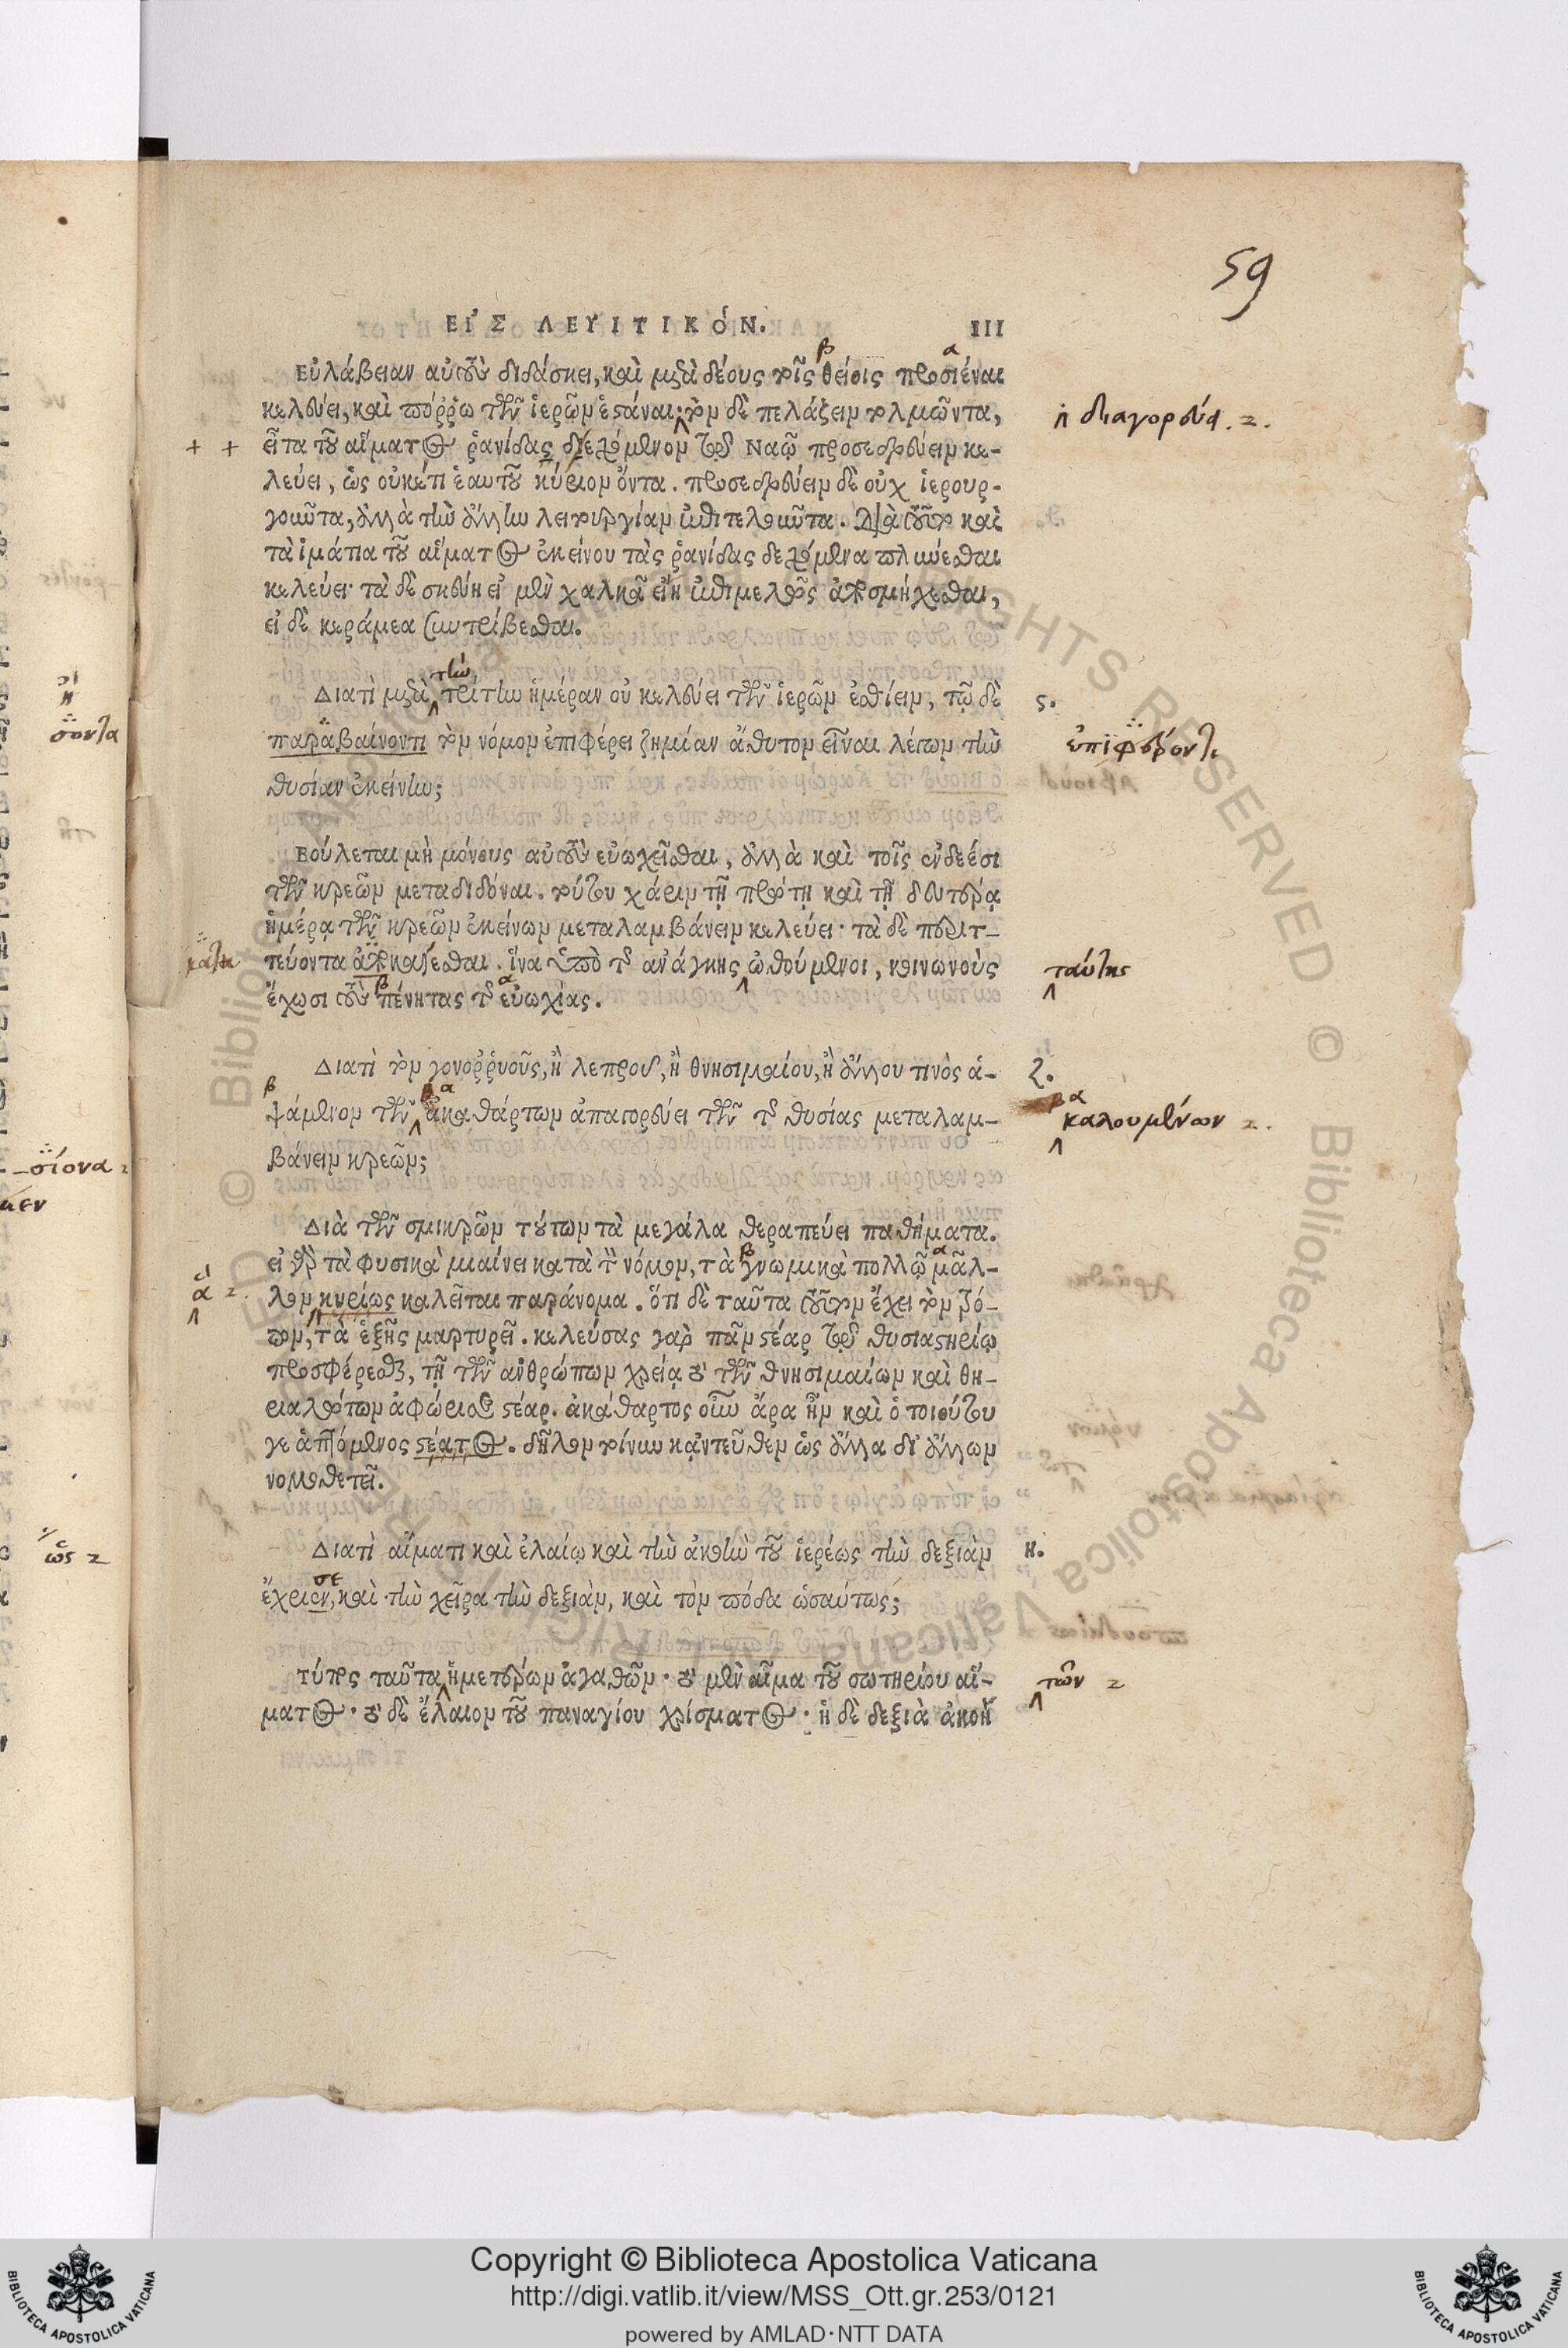 59
ΕΙΣ ΛΕΥΙΤΙΚΟΝ. 111
Εὐλάβειαν αὐτοὺς διδάσκει, καὶ μετὰ δέους τοῖς θείοις προσιέναι
κελεύει, καὶ πόῤῥω τῶν ἱερῶν ἑστάναι· τὸν δὲ πελάζειν τολμῶντα,
ἢ διαγορεύει. 2.
+ + εἶτα τοῦ αἵματος ῥανίδας δεξόμενον τῷ Ναῷ προσεδρεύειν κε-
λεύει, ὡς οὐκέτι ἑαυτοῦ κύριον ὄντα. προσεδρεύειν δὲ οὐχ ἱερουρ-
γοῦντα, ἀλλὰ τὴν ἄλλην λειτουργίαν ἐπιτελοῦντα. διὰ τοῦτο καὶ
τὰ ἱμάτια τοῦ αἵματος ἐκείνου τὰς ῥανίδας δεξόμενα πλύνεσθαι
κελεύει· τὰ δὲ σκεύη εἰ μὲν χαλκᾶ εἴη ἐπιμελῶς ἀποσμήχεσθαι,
εἰ δὲ κεράμεα συντρίβεσθαι.
τὴν
Διατὶ μετὰ τρίτην ἡμέραν οὐ κελεύει τῶν ἱερῶν ἐσθίειν, τῷ δὲ ς.
παραβαίνοντι τὸν νόμον ἐπιφέρει ζημίαν ἄθυτον εἶναι λέγων τὴν ἐπιφέροντι
θυσίαν ἐκείνην;
Βούλεται μὴ μόνους αὐτοὺς εὐωχεῖσθαι, ἀλλὰ καὶ τοῖς ἐνδεέσι
τῶν κρεῶν μεταδιδόναι. τούτου χάριν τῇ πρώτῃ καὶ τῇ δευτέρᾳ
ἡμέρᾳ τῶν κρεῶν ἐκείνων μεταλαμβάνειν κελεύει· τὰ δὲ περιτ-
κατα τεύοντα ἀποκαίεσθαι. ἵνα ὑπὸ τῆς ἀνάγκης ὠθούμενοι, κοινωνοὺς ταύτης
ἔχωσι τοὺς πένητας τῆς εὐωχίας.
Διατὶ τὸν γονοῤῥυοῦς, ἢ λεπροῦ, ἢ θνησιμαίου, ἢ ἄλλου τινὸς ἁ- ζ.
ψάμενον τῶν ἀκαθάρτων ἀπαγορεύει τῶν τῆς θυσίας μεταλαμ- καλουμένων 2.
βάνειν κρεῶν;
Διὰ τῶν σμικρῶν τούτων τὰ μεγάλα θεραπεύει παθήματα.
εἰ γὰρ τὰ φυσικὰ μιαίνει κατὰ τὸν νόμον, τὰ γνωμικὰ πολλῷ μᾶλ-
ἃ 2. λον κυρίως καλεῖται παράνομα. ὅτι δὲ ταῦτα τοῦτον ἔχει τὸν τρό-
πον, τὰ ἑξῆς μαρτυρεῖ. κελεύσας γὰρ πᾶν στέαρ τῷ θυσιαστηρίῳ
προσφέρεσθαι, τῇ τῶν ἀνθρώπων χρείᾳ τὸ τῶν θνησιμαίων καὶ θη-
ριαλώτων ἀφώρισε στέαρ. ἀκάθαρτος οὖν ἄρα ἦν καὶ ὁ τοιούτου
γε ἁπτόμενος στέατος. δῆλον τοίνυν κἀντεῦθεν ὡς ἄλλα δι' ἄλλων
νομοθετεῖ.
Διατὶ αἵματι καὶ ἐλαίῳ καὶ τὴν ἀκοὴν τοῦ ἱερέως τὴν δεξιὰν η.
σε
ἔχριεν, καὶ τὴν χεῖρα τὴν δεξιὰν, καὶ τὸν πόδα ὡσαύτως;
τύπος ταῦτα ἡμετέρων ἀγαθῶν· τὸ μὲν αἷμα τοῦ σωτηρίου αἵ- τῶν 2
ματος· τὸ δὲ ἔλαιον τοῦ παναγίου χρίσματος· ἡ δὲ δεξιὰ ἀκοὴ
Copyright © Biblioteca Apostolica Vaticana
http://digi.vatlib.it/view/MSS_Ott.gr.253/0121
powered by AMLAD·NTT DATA